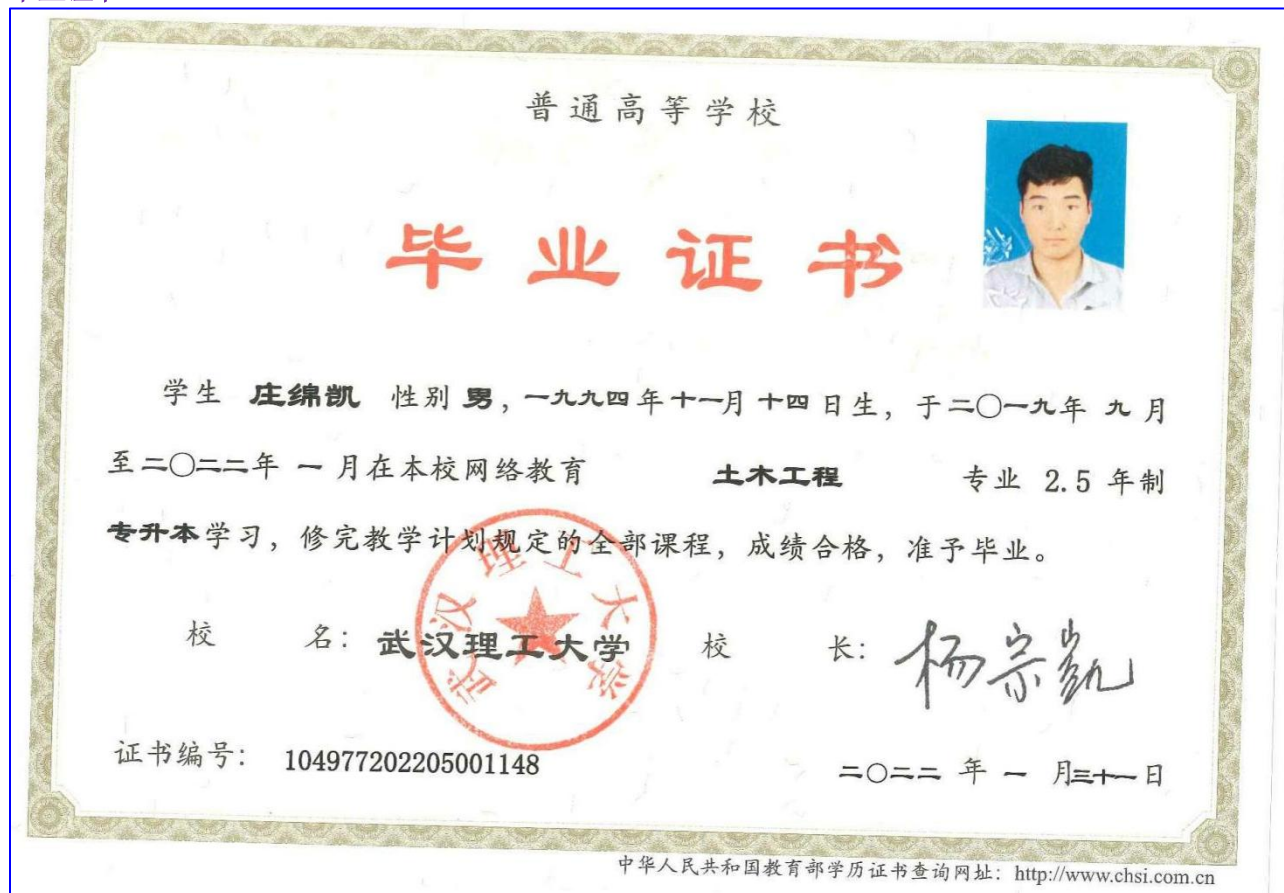 普通高等学校
毕业证书
学生 庄绵凯 性别 男，一九九四年十一月十四日生，于二〇一九年 九月
至二〇二二年 一月在本校网络教育 土木工程 专业 2.5 年制
专升本学习，修完教学计划规定的全部课程，成绩合格，准予毕业。
校 名：武汉理工大学 校 长：杨宗凯
武汉理工大学
证书编号： 104977202205001148 二〇二二 年 一 月三十一日
中华人民共和国教育部学历证书查询网址：http://www.chsi.com.cn